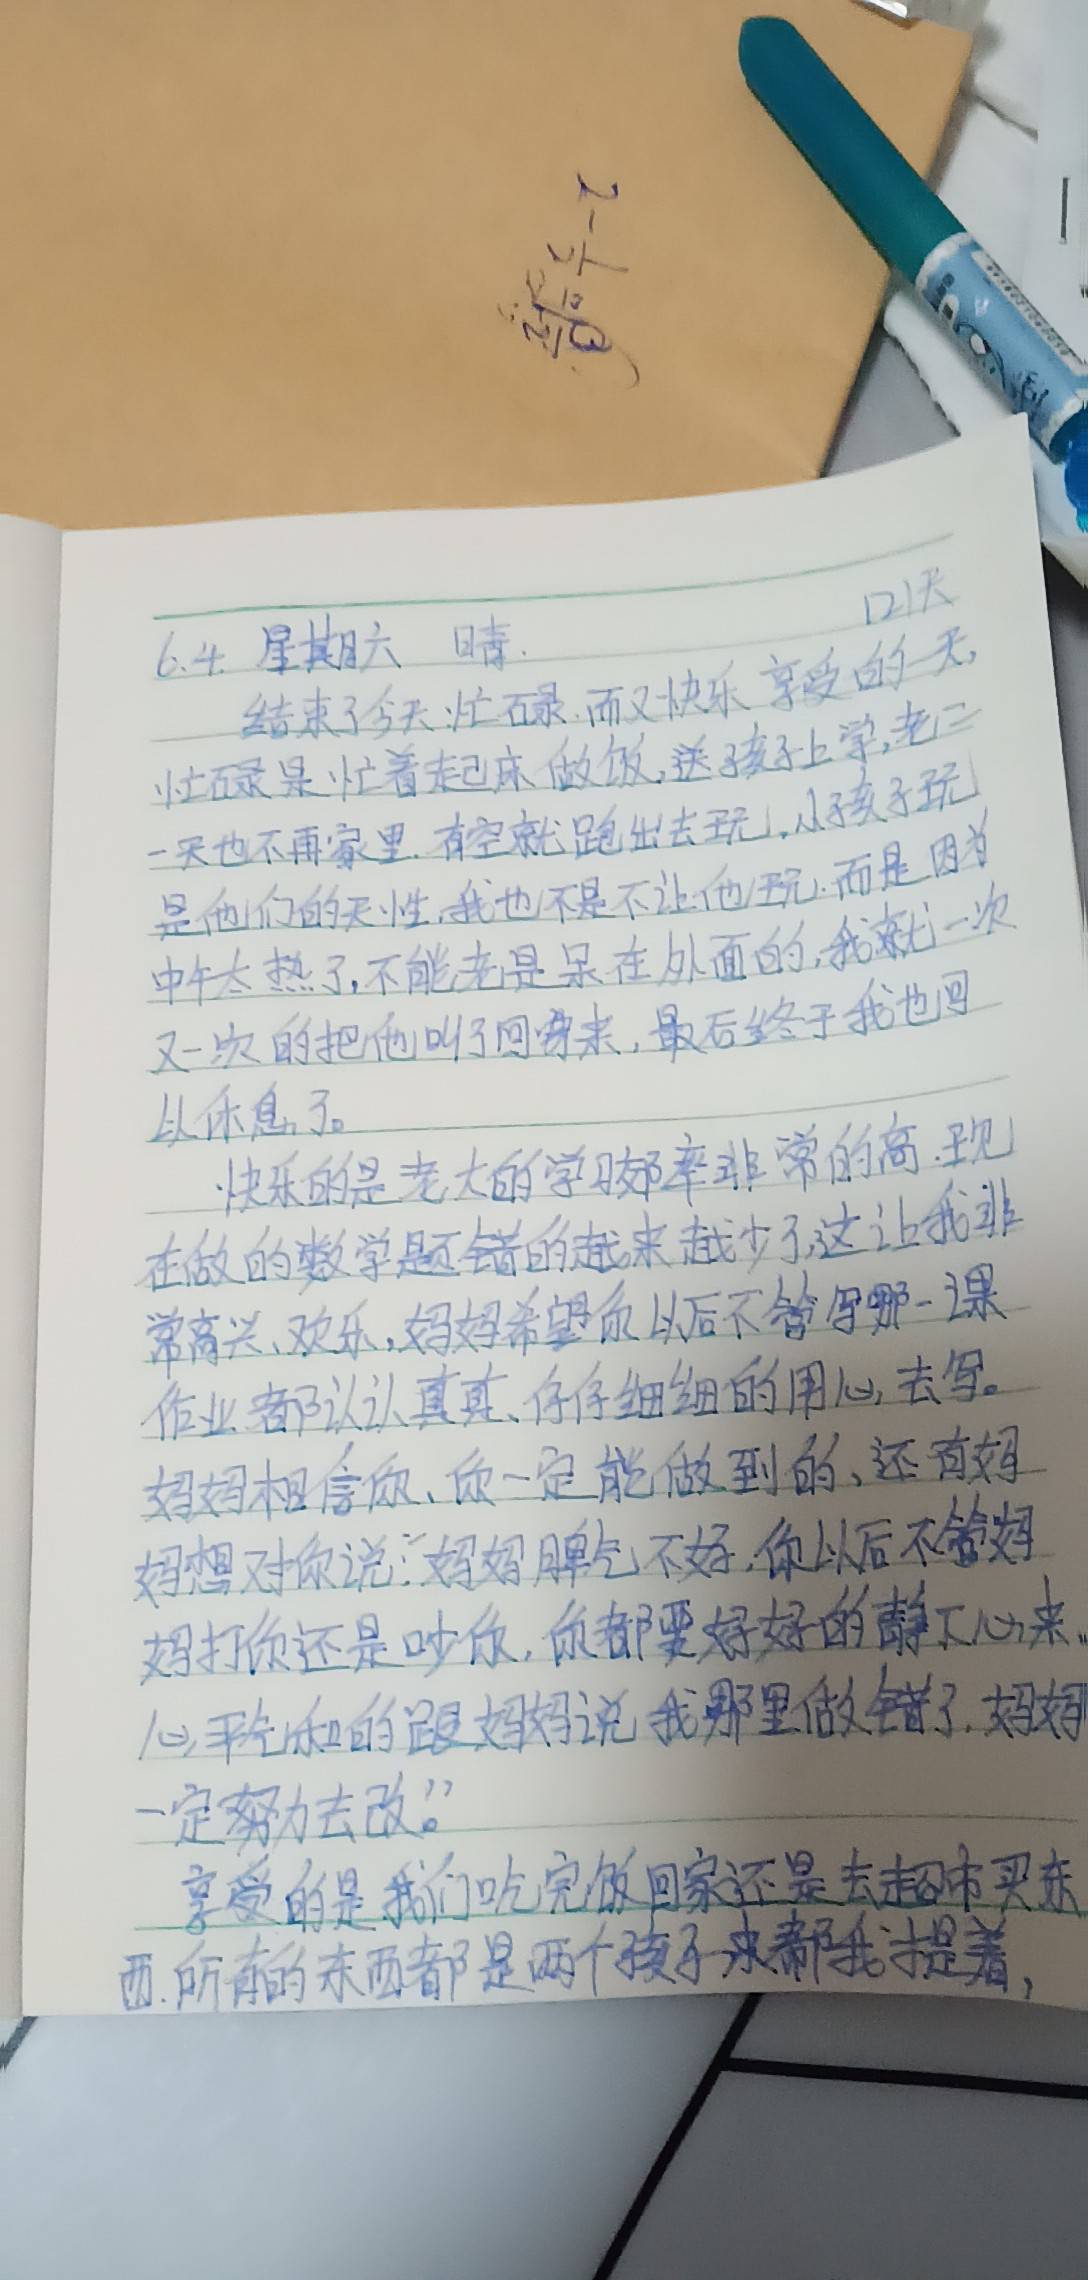 6.4. 星期六 晴. 121天
结束了今天忙碌.而又快乐享受的一天,
忙碌是忙着起床做饭,送孩子上学,老二
一天也不再家里.有空就跑出去玩.从孩子玩
是他们的天性.我也不是不让他玩.而是因为
中午太热了,不能老是呆在外面的,我就一次
又一次的把他叫了回来,最后终于我也可
以休息了。
快乐的是老大的学习效率非常的高.现
在做的数学题错的越来越少了,这让我非
常高兴、欢乐,妈妈希望你以后不管写哪一课
作业都认认真真、仔仔细细的用心去写。
妈妈相信你、你一定能做到的、还有妈
妈想对你说:“妈妈脾气不好.你以后不管妈
妈打你还是吵你,你都要好好的静下心来..
心平气和的跟妈妈说我那里做错了.妈妈
一定努力去改。”
享受的是我们吃完饭回家还是去超市买东
西.所有的东西都是两个孩子来帮我提着,